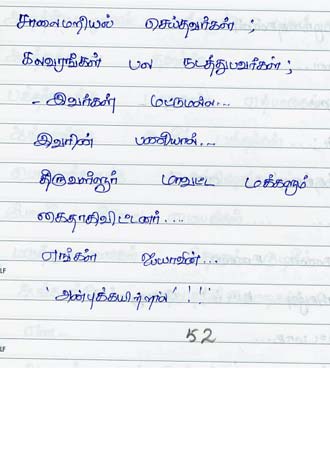 சாலைமறியல் செய்தவர்கள் ;
கலவரங்கள் பல நடத்துபவர்கள் ;
- இவர்கள் மட்டுமல்ல...
இவரின் பணியால்...
திருவள்ளூர் மாவட்ட மக்களும்
கைதாகிவிட்டனர்...
எங்கள் ஐயாவின்...
'அன்புக்கயிற்றால்' !!!
52